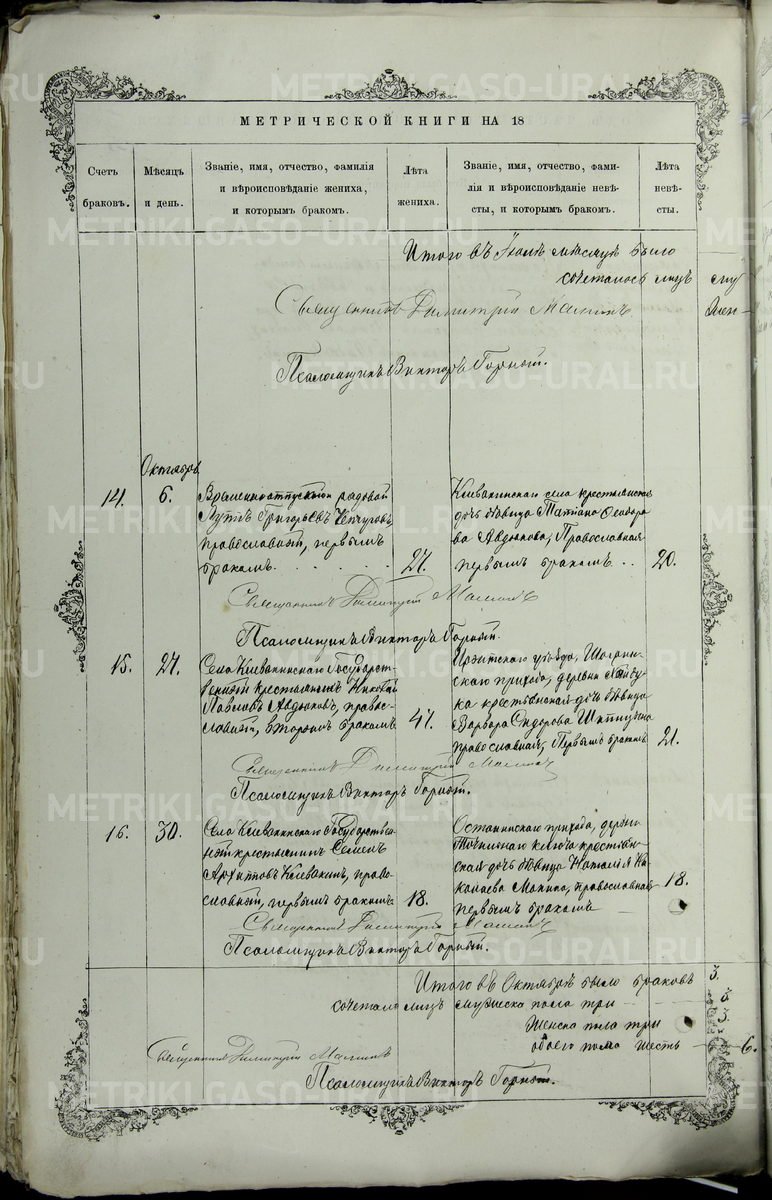 МЕТРИЧЕСКОЙ КНИГИ НА 18
Счетъ
браковъ.
Мѣсяцъ
и день.
Званіе, имя, отчество, фамилія
и вѣроисповѣданіе жениха,
и которымъ бракомъ.
Лѣта
жениха.
Званіе, имя, отчество, фами-
лія и вѣроисповѣданіе невѣ-
сты, и которымъ бракомъ.
Лѣта
невѣ-
сты.
Итого въ мѣсяцѣ было
сочеталось лицъ
Священникъ Димитрій
Псаломщикъ Викторъ Горный.
Октября
14.
6.
Временноотпускной рядовой
Григорьевъ
православный, первымъ
бракомъ.
27.
Клевакинскаго села крестьянская
дочь дѣвица Татіана Ѳеодоро-
ва Авдюкова, Православная
первымъ бракомъ
20.
Священникъ Димитрій
Псаломщикъ Викторъ Горный.
15.
27.
Села Клевакинскаго Государст-
венный крестьянинъ Николай
Павловъ Авдюковъ, правос-
лавный, вторымъ бракомъ
47.
Ирбитскаго уѣзда,
скаго прихода, деревни
ка крестьянская дочь дѣвица
Варвара Сидорова
православная, Первымъ бракомъ
21.
Священникъ Димитрій
Псаломщикъ Викторъ Горный.
16.
30.
Села Клевакинскаго Государствен-
ный крестьянинъ Семенъ
Архиповъ Клевакинъ, право-
славный, первымъ бракомъ
18.
Останинскаго прихода, деревни
Точильнаго ключа крестьян-
ская дочь дѣвица Наталія Ни-
колаева Макина, православная
первымъ бракомъ
18.
Священникъ Димитрій
Псаломщикъ Викторъ Горный.
Итого въ Октябрѣ было браковъ 3.
сочетало лицъ мужеска пола три 3.
Женска пола три 3.
обоего пола шесть 6.
Священникъ Димитрій
Псаломщикъ Викторъ Горный.
METRIKI.GASO-URAL.RU